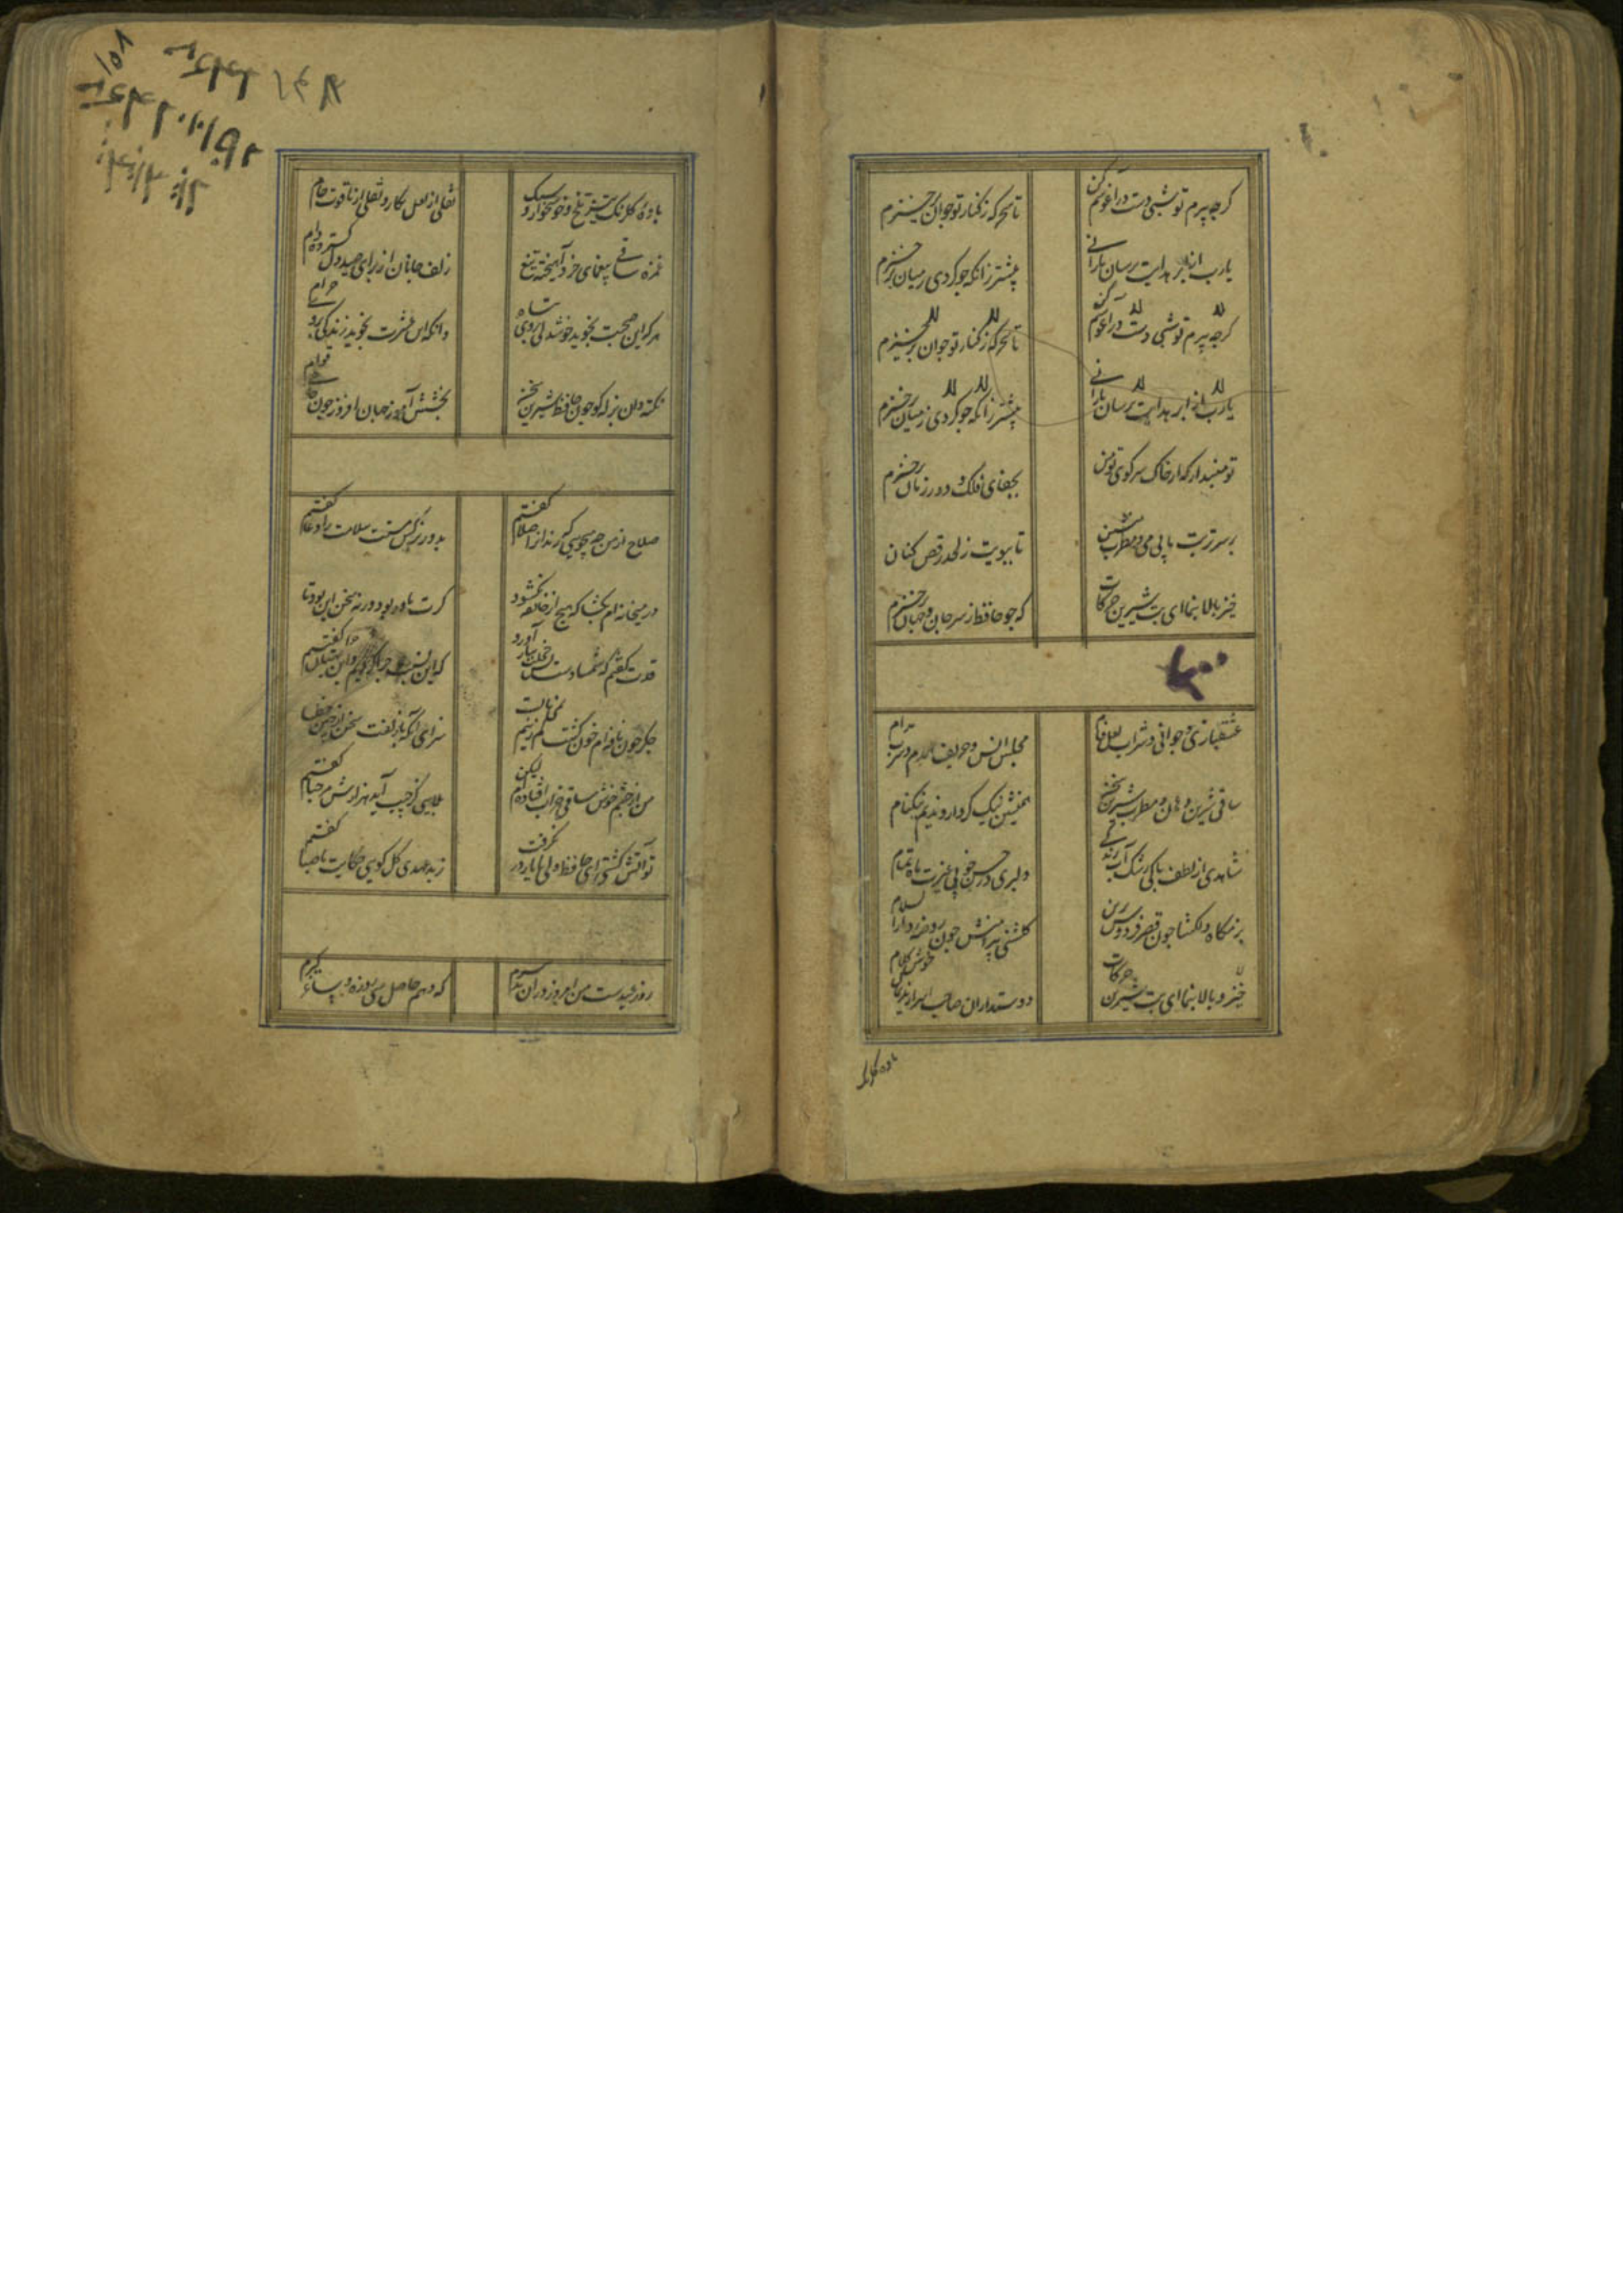 کرچه پیرم تو شبی دست در آغوشم کن
تا سحرکه ز کنار تو جوان برخیزم
یارب از ابر هدایت برسان بارانی
پیشتر زانکه چو کردی ز میان برخیزم
کرچه پیرم تو شبی دست در آغوشم کن
تا سحرکه ز کنار تو جوان برخیزم
یارب از ابر هدایت برسان بارانی
پیشتر زانکه چو کردی ز میان برخیزم
تو مپندار که از خاک سر کوی تو من
بجفای فلک و دور زمان برخیزم
بر سر تربت ما بی می و مطرب منشین
تا ببویت ز لحد رقص کنان
خیز بالا بنما ای بت شیرین حرکات
که چو حافظ از سر جان و جهان برخیزم
عشقبازی و جوانی و شراب لعل فام
مجلس انس و حریف همدم و شرب مدام
ساقی شیرین دهان و مطرب شیرین سخن
همنشین نیک کردار و ندیم نیکنام
شاهدی از لطف پاکی رشک آب زندکی
دلبری در حسن خوبی غیرت ماه تمام
بزمکاه دلکشا چون قصر فردوس برین
کلشنی پیرامنش چون روضه دارالسلام
خیز و بالا بنما ای بت شیرین حرکات
دوستداران صاحب اسرار
باده کلرنک
باده کلرنک تیز تلخ و خوشخوار و سبک
نقلی از لعل نکار و نقلی از یاقوت خام
غمزه ساقی بیغمای خرد آهیخته تیغ
زلف جانان از برای صید دل کسترده دام
هرکه این صحبت بجوید خوشدلی بروی تباه
وانکه این عشرت نجوید زندکی بروی حرام
نکته دان بذله کو چون حافظ شیرین سخن
بخشش آموز جهان افروز چون حاجی قوام
صلاح از من چه میجویی که رندانرا صلا کفتم
بدور نرکس مستت سلامت را دعا کفتم
در میخانه ام بکشا که هیچ از خانقه نکشود
کرت باور بود ور نه سخن این بود و ما کفتم
قدت کفتم که شمشادست بس خجلت ببار آورد
که این نسبت چرا کردیم و این بهتان چرا کفتم
جکر چون نافه ام خون کشت کم زینم نمی باید
سزای آنکه با زلفت سخن از چین خطا کفتم
من از چشم خوش ساقی خراب افتاده ام لیکن
بلایی کز حبیب آید هزارش مرحبا کفتم
تو آتش کشتی ای حافظ ولی با یار در نکرفت
ز بدعهدی کل کویی حکایت با صبا کفتم
روز عیدست من امروز در آن تدبیرم
که دهم حاصل سی روزه و ساغر کیرم